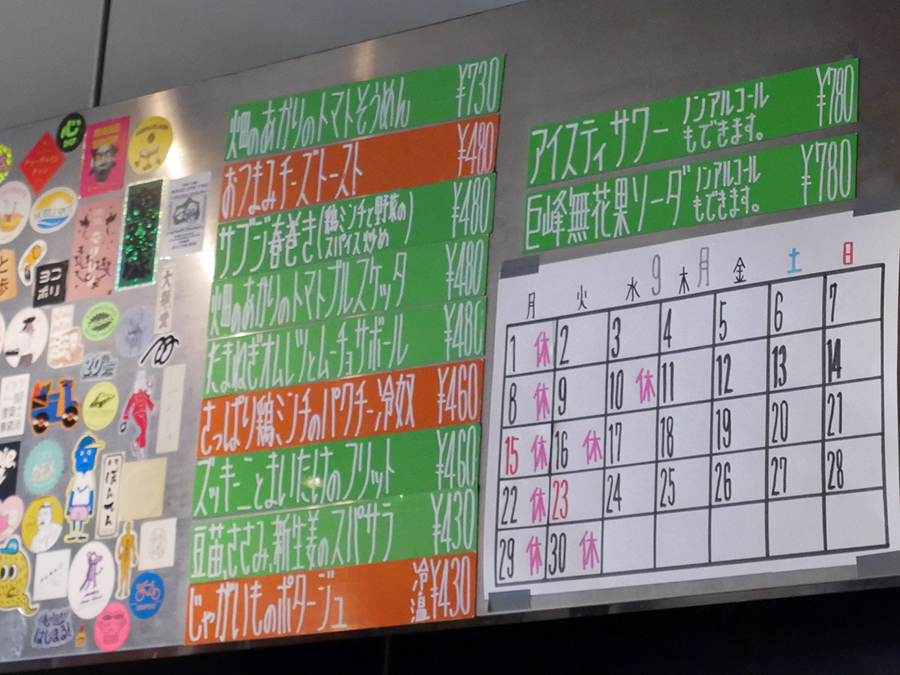 畑のあかりのトマトそうめん ¥730
おつまみチーズトースト ¥480
サブジ春巻き(鶏ミンチと野菜のスパイス炒め) ¥480
畑のあかりのトマトブルスケッタ ¥480
たまねぎオムレツとムーチョサボール ¥480
さっぱり鶏ミンチのパクチー冷奴 ¥460
ズッキーニとまいたけのフリット ¥460
豆苗、ささみ、新生姜のスパサラ ¥430
じゃがいものポタージュ 冷 温 ¥430
アイスティサワー ノンアルコールもできます。 ¥780
巨峰無花果ソーダ ノンアルコールもできます。 ¥780
9月
月 火 水 木 金 土 日
1 休 2 3 4 5 6 7
8 休 9 10 休 11 12 13 14
15 休 16 休 17 18 19 20 21
22 休 23 24 25 26 27 28
29 休 30 休
ヨコ
ポリ
ぽんてん
はじまる!